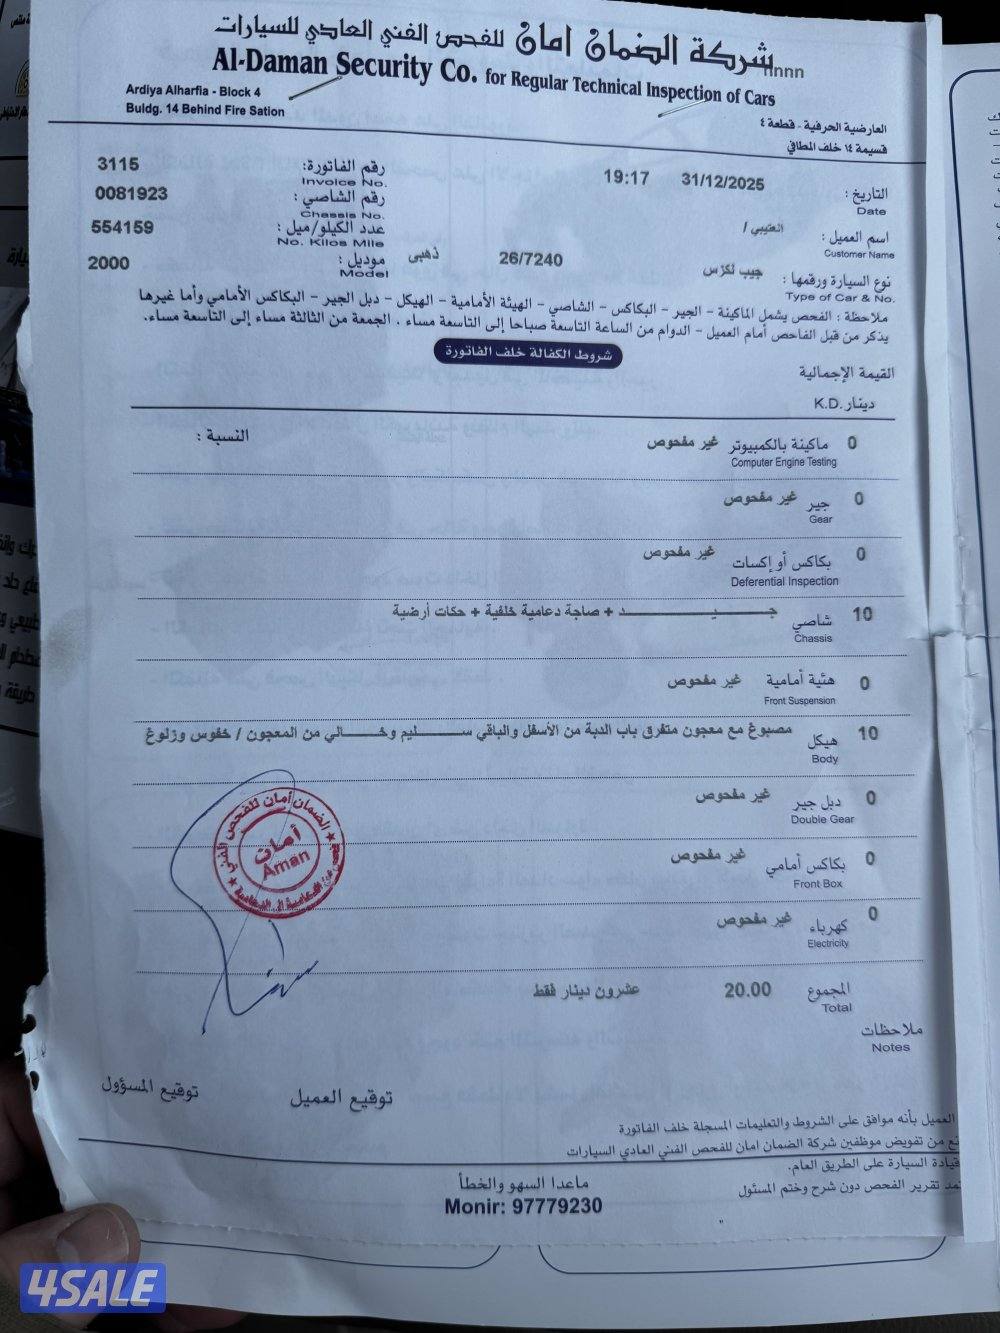 شركة الضمان امان للفحص الفني العادي للسيارات
nnnn
Al-Daman Security Co. for Regular Technical Inspection of Cars
Ardiya Alharfia - Block 4
Buldg. 14 Behind Fire Sation
العارضية الحرفية - قطعة ٤
قسيمة ١٤ خلف المطافي
التاريخ : 31/12/2025 19:17
Date
رقم الفاتورة: 3115
Invoice No.
رقم الشاصي : 0081923
Chassis No.
اسم العميل : العتيبي /
Customer Name
عدد الكيلو/ميل : 554159
No. Kilos Mile
نوع السيارة ورقمها : جيب لكزس 26/7240 ذهبى
Type of Car & No.
موديل : 2000
Model
ملاحظة : الفحص يشمل الماكينة - الجير - البكاكس - الشاصي - الهيئة الأمامية - الهيكل - دبل الجير - البكاكس الأمامي وأما غيرها
يذكر من قبل الفاحص أمام العميل - الدوام من الساعة التاسعة صباحا إلى التاسعة مساء . الجمعة من الثالثة مساء إلى التاسعة مساء.
شروط الكفالة خلف الفاتورة
القيمة الإجمالية
دينار K.D.
0 ماكينة بالكمبيوتر غير مفحوص النسبة :
Computer Engine Testing
0 جير غير مفحوص
Gear
0 بكاكس أو إكسات غير مفحوص
Deferential Inspection
10 شاصي جـــــيـــــد + صاجة دعامية خلفية + حكات أرضية
Chassis
0 هئية أمامية غير مفحوص
Front Suspension
10 هيكل مصبوغ مع معجون متفرق باب الدبة من الأسفل والباقي ســـليم وخـــالي من المعجون / خفوس وزلوغ
Body
0 دبل جير غير مفحوص
Double Gear
0 بكاكس أمامي غير مفحوص
Front Box
0 كهرباء غير مفحوص
Electricity
الضمان أمان للفحص الفني
أمان
Aman
المجموع 20.00 عشرون دينار فقط
Total
ملاحظات
Notes
توقيع العميل
توقيع المسؤول
العميل بأنه موافق على الشروط والتعليمات المسجلة خلف الفاتورة
من تفويض موظفين شركة الضمان امان للفحص الفني العادي السيارات
قيادة السيارة على الطريق العام.
تقرير الفحص دون شرح وختم المسئول
ماعدا السهو والخطأ
Monir: 97779230
4SALE